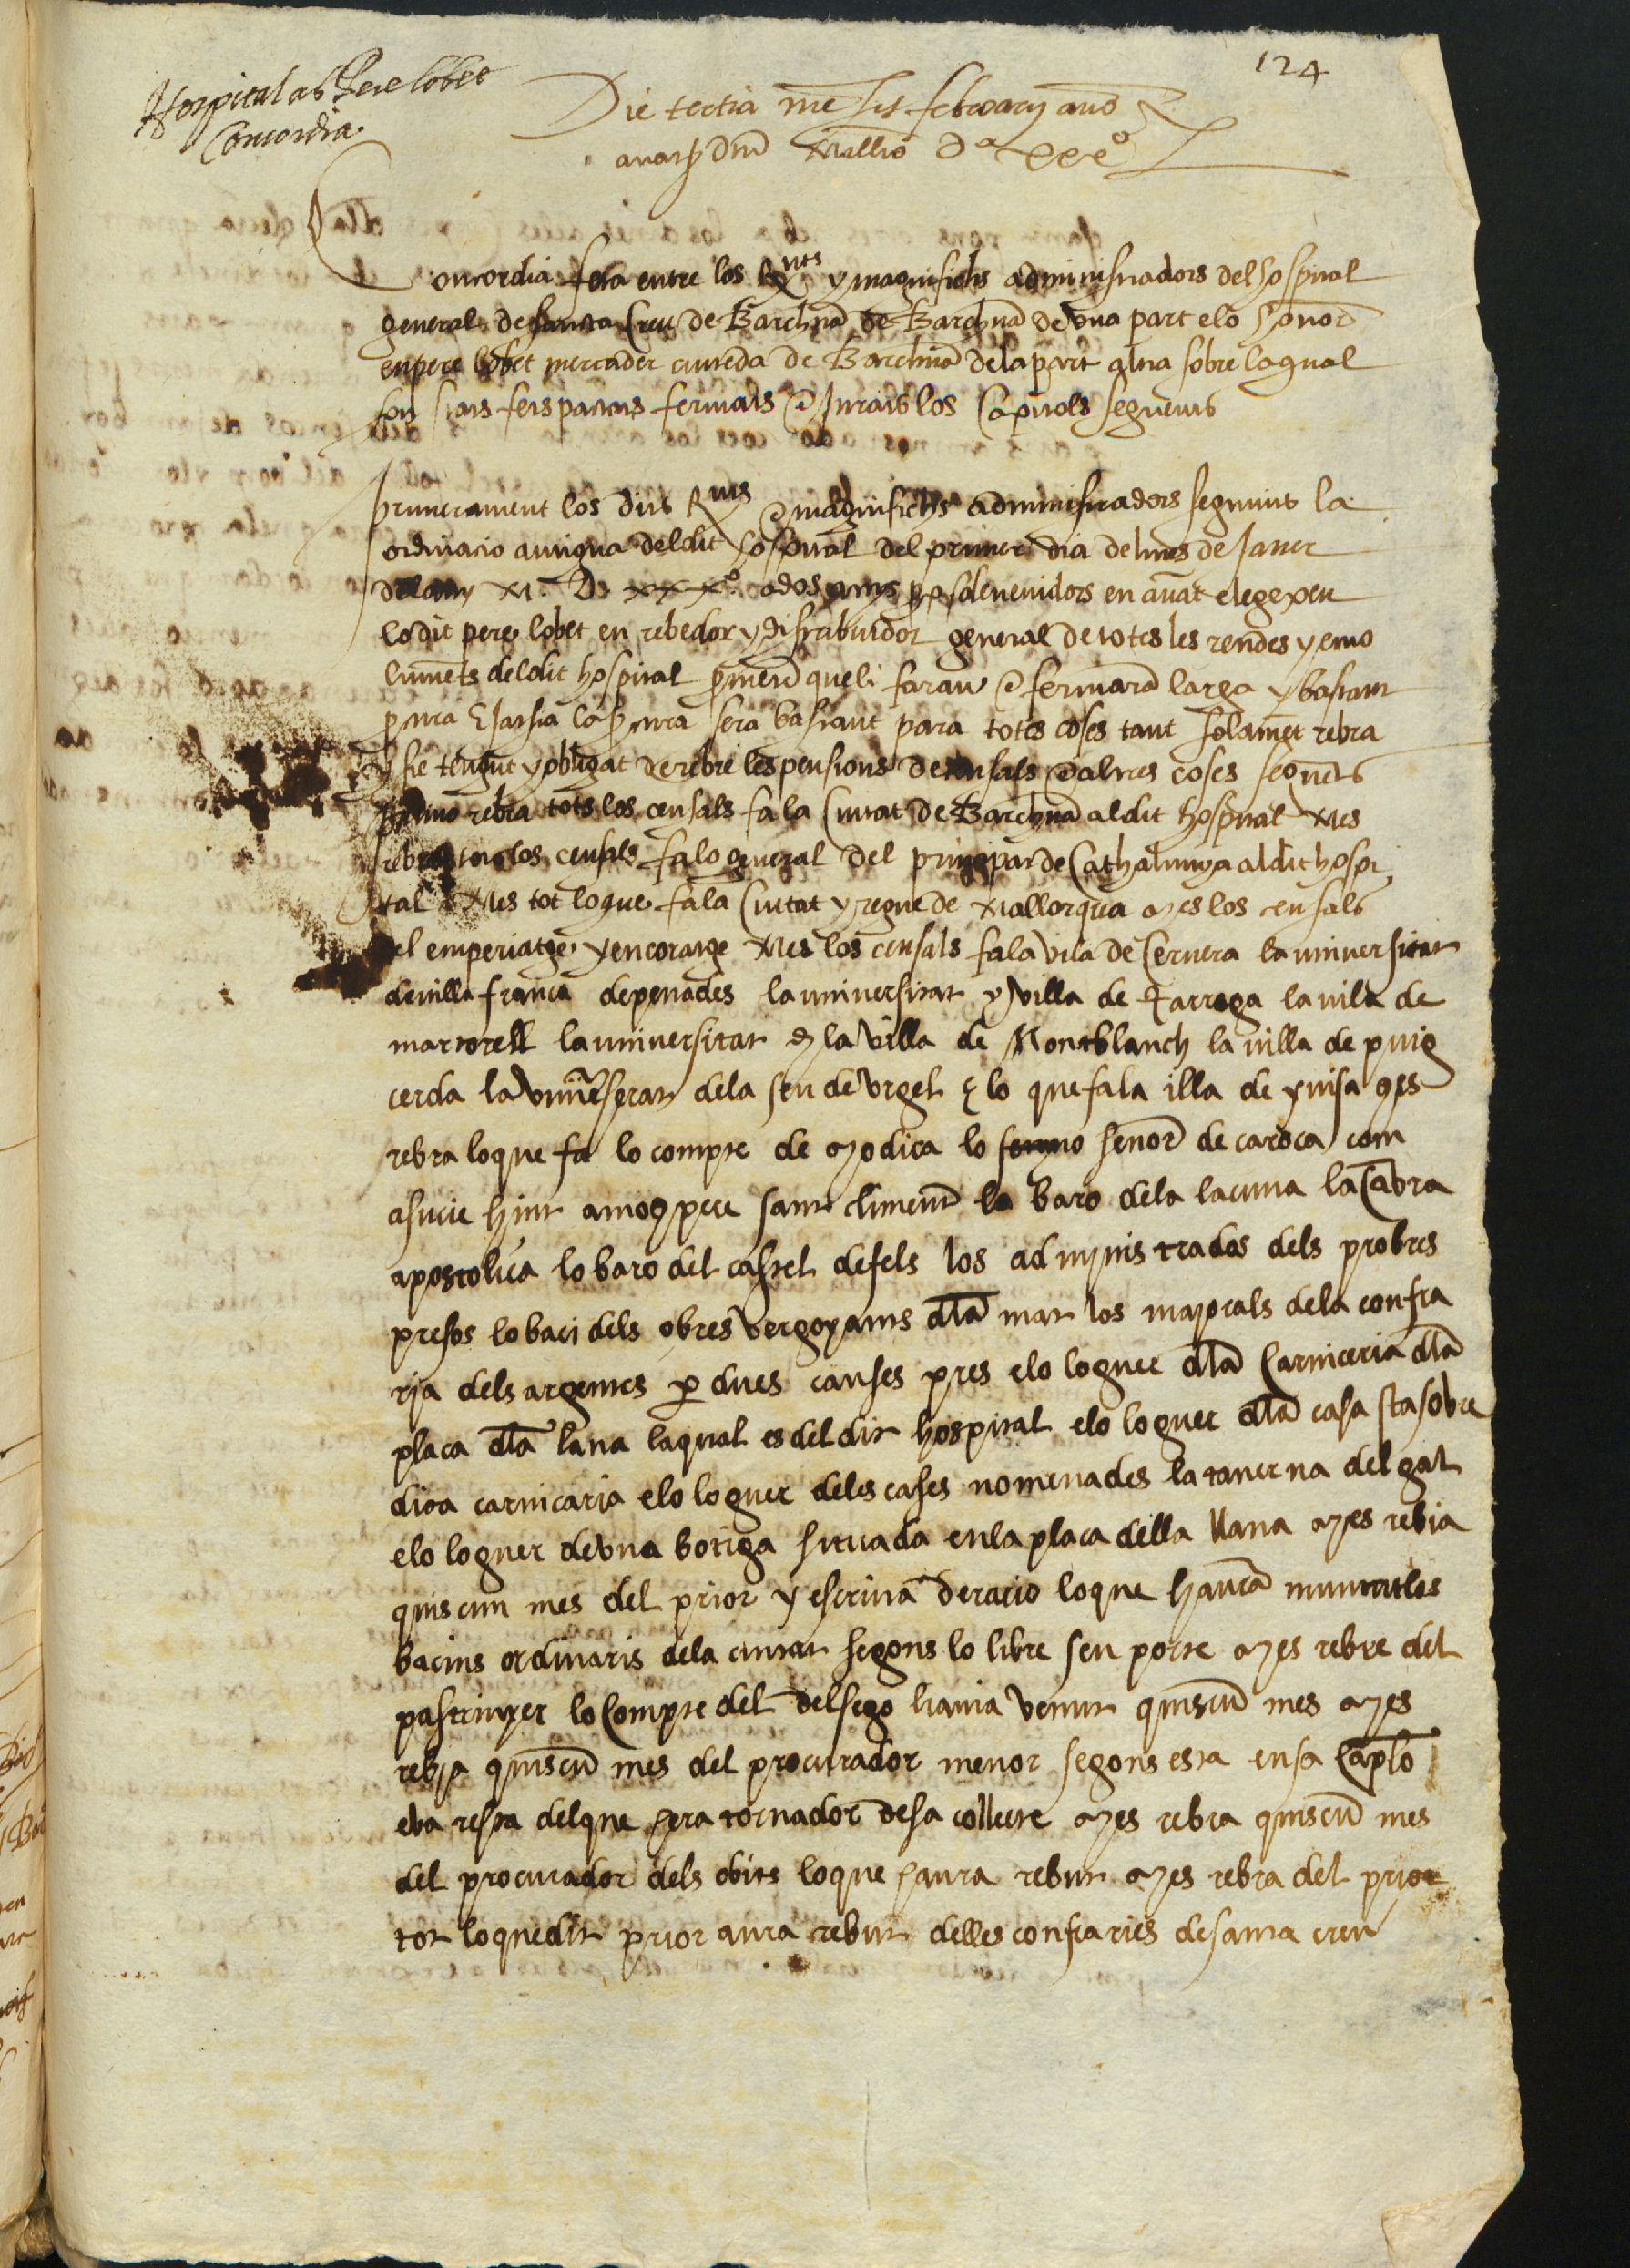 124
Hospital ab Pere lobet
Concordia.
Die tertia mesis febroarij
Millio D
Concordia feta entre los R nts y magnifichs administradors del hospital
general de sancta Creu de Barchna de Barchna de vna part e lo honor
en pere lobet mercader ciuteda de Barchna de la part altra sobre la qual
son stats fets pactats fermats e Jurats los Capitols seguents
primerament los dits R nts e magnifichs administradors seguint la
ordinacio antigua del dit hospital del primer dia del mes de Janer
del any M. D. xxx.º a dos anys esdeuenidors en auat elegexen
lo dit pere lobet en rebedor y distribuidor general de totes les rendes y emo
lumets del dit hospital queli faran e fermara larga y bastant
la sera bastant para totes coses tant solamet rebra
y sie tengut y obligat de rebre les pensions de censals e altres coses seguets
primo rebra tots los censals fa la Ciutat de Barchna al dit hospital Mes
rebra tots los censals fa lo general del principat de Cathalunya al dit hospi
tal Mes tot lo que fa la Ciutat y regne de Mallorqua mes los censals
del emperiatge y encoratge Mes los censals fa la vila de Ceruera la vniuersitat
de villa franca de penades la vniuersitat y villa de Tarrega la vila de
martorell la vniuersitat de la villa de Montblanch la villa de puig
cerda la vniuerserat de la seu de vrgel e lo que fa la illa de yuisa mes
rebra lo que fa lo compte de modica lo senor de caroca com
asucie hint pere sant climent la baro de la lacuna la Cabra
apostolica lo baro del castel de fels los administrados dels probres
presos lo baci dels obres vergoyants dla mar los majorals de la confra
ria dels argentes per dues causes pres e lo loguer dla Carniceria dla
placa dla lana la qual es del dit hospital e lo loguer dla casa sta sobre
dita carnicaria e lo loguer deles cases nomenades la tauerna del gal
e lo loguer de vna botiga situada en la placa della llana mes rebia
quiscun mes del prior y escriua de racio lo que haura muntat les
bacins ordinaris de la ciutat segons lo libre sen porte mes rebre del
pastrinyer lo Compte del del sego hauia venut quiscu mes mes
rebja quiscu mes del procurador menor segons esta en sa Caplo
e la resta del que sera tornador de sa collecte mes rebra quiscu mes
del procurador dels obits lo que haura rebut mes rebra del prior
tot lo que dit prior aura rebut delles confraries de santa creu